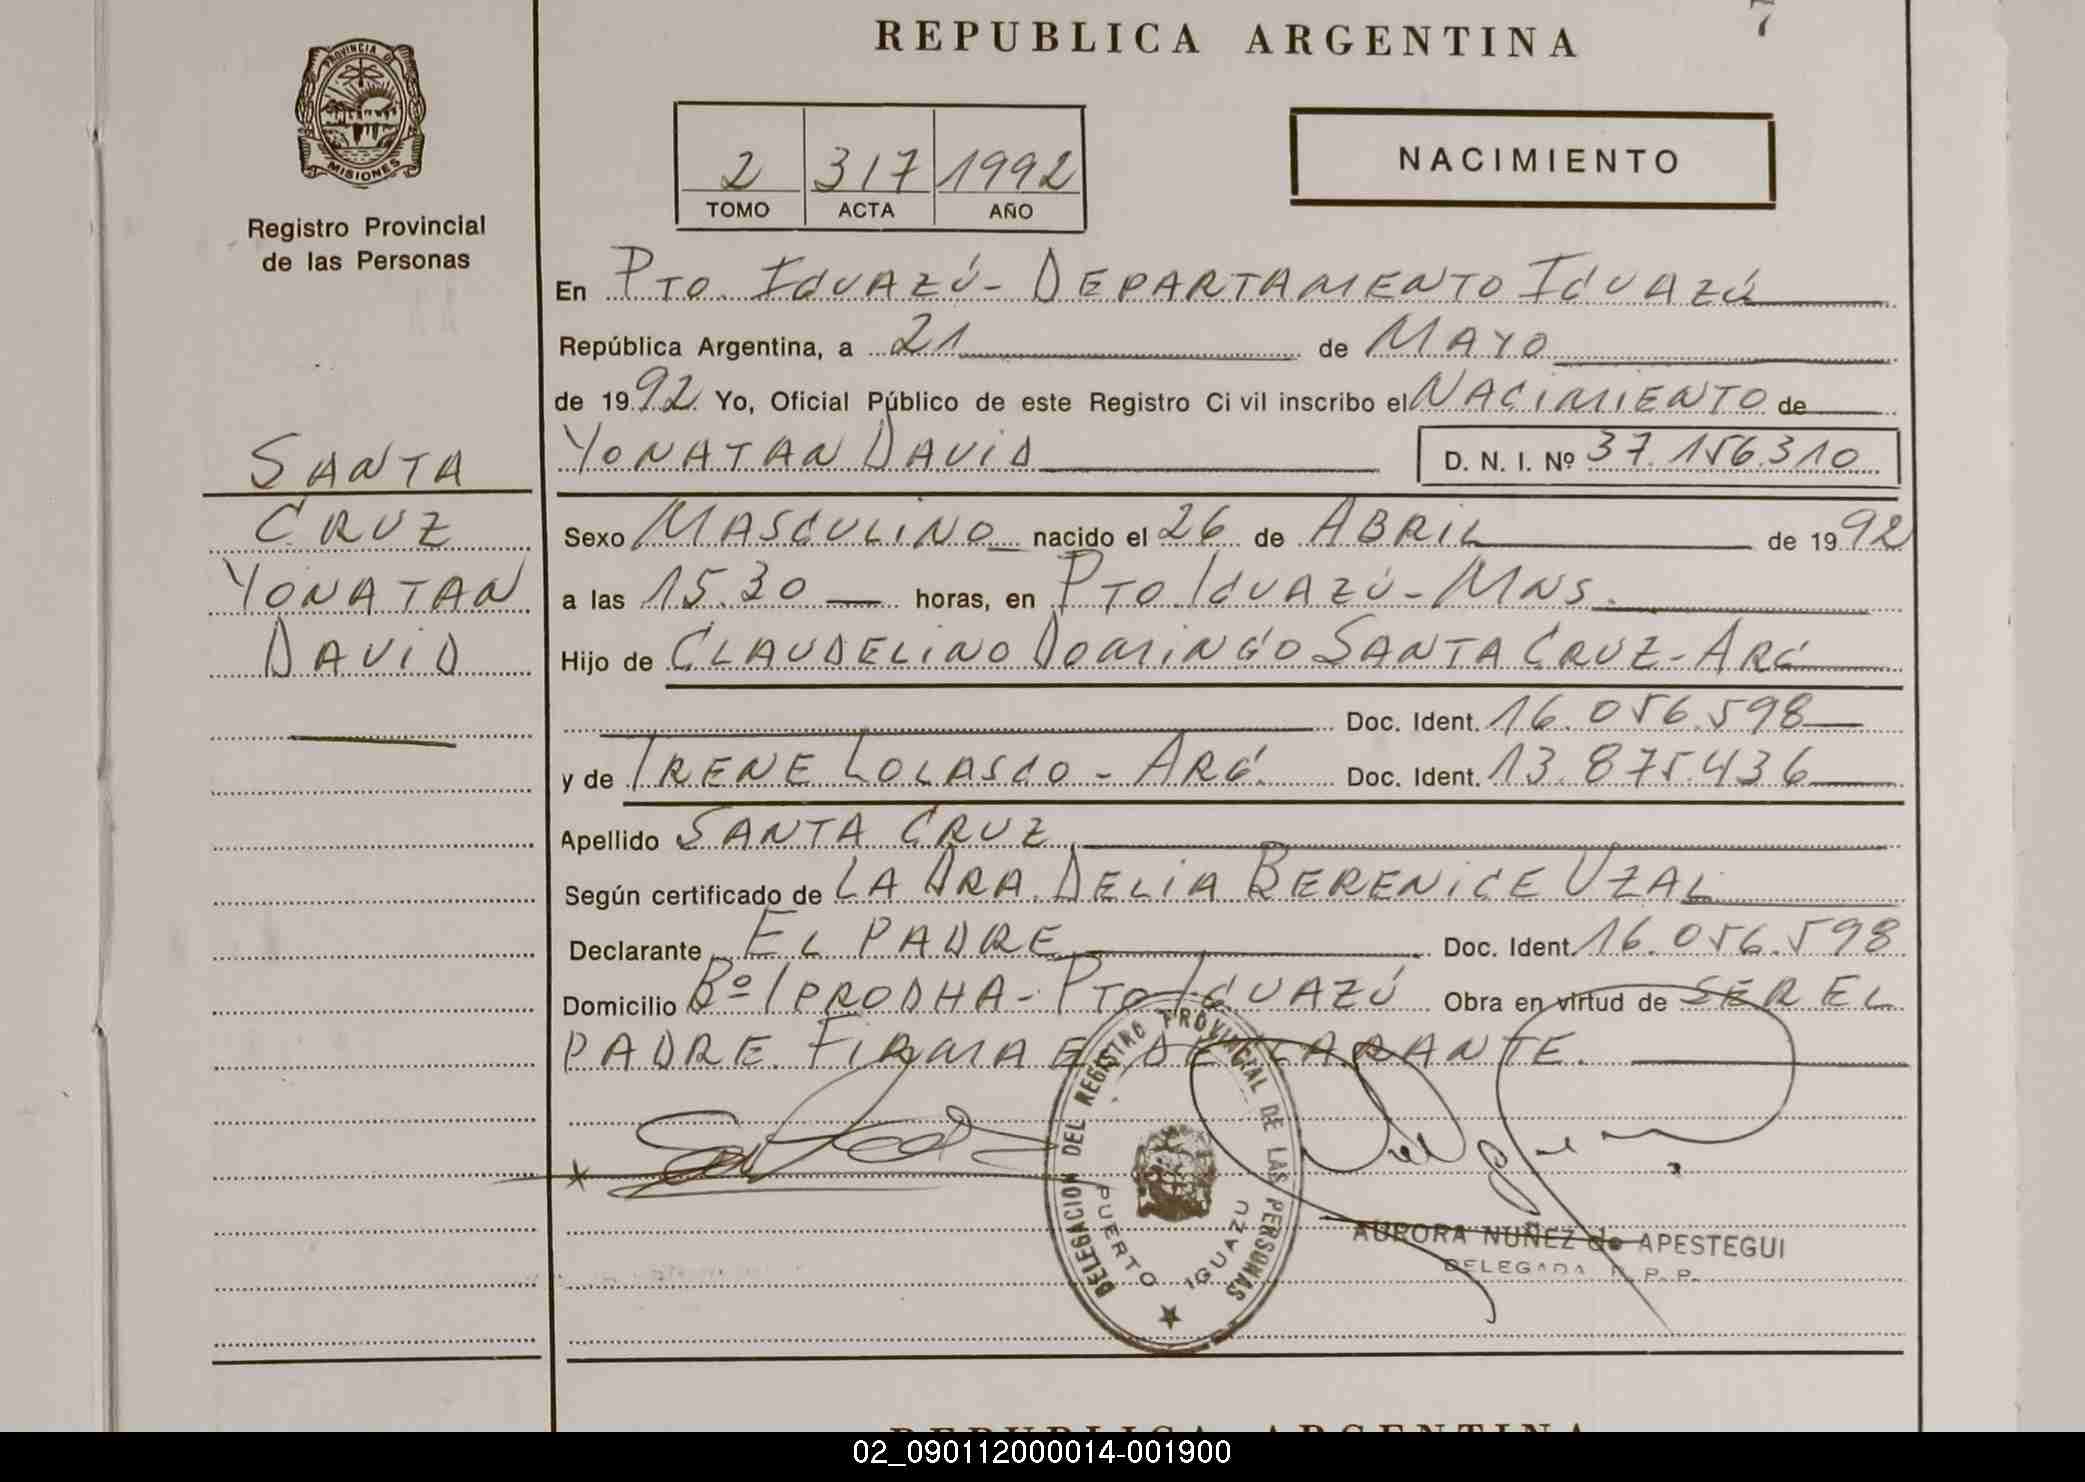 REPUBLICA ARGENTINA
7
PROVINCIA DE
MISIONES
Registro Provincial
de las Personas
2 317 1992
TOMO ACTA AÑO
NACIMIENTO
En PTO. IGUAZÚ - DEPARTAMENTO IGUAZÚ
República Argentina, a 21 de MAYO
de 1992 Yo, Oficial Público de este Registro Civil inscribo el NACIMIENTO de
YONATAN DAVID D. N. I. Nº 37.156.310
SANTA
CRUZ
YONATAN
DAVID
Sexo MASCULINO nacido el 26 de ABRIL de 1992
a las 15.30 horas, en PTO IGUAZÚ - MNS.
Hijo de CLAUDELINO DOMINGO SANTA CRUZ - ARG
Doc. Ident. 16.056.598
y de IRENE LOLASCO - ARG. Doc. Ident. 13.875.436
Apellido SANTA CRUZ
Según certificado de LA DRA. DELIA BERENICE UZAL
Declarante EL PADRE Doc. Ident. 16.056.598
Domicilio Bº IPRODHA - PTO IGUAZÚ Obra en virtud de SER EL
PADRE. FIRMA EL DECLARANTE.
DELEGACION DEL REGISTRO PROVINCIAL DE LAS PERSONAS
PUERTO IGUAZU
AURORA NUÑEZ de APESTEGUI
DELEGADA R. P. P.
REPUBLICA ARGENTINA
02_090112000014-001900